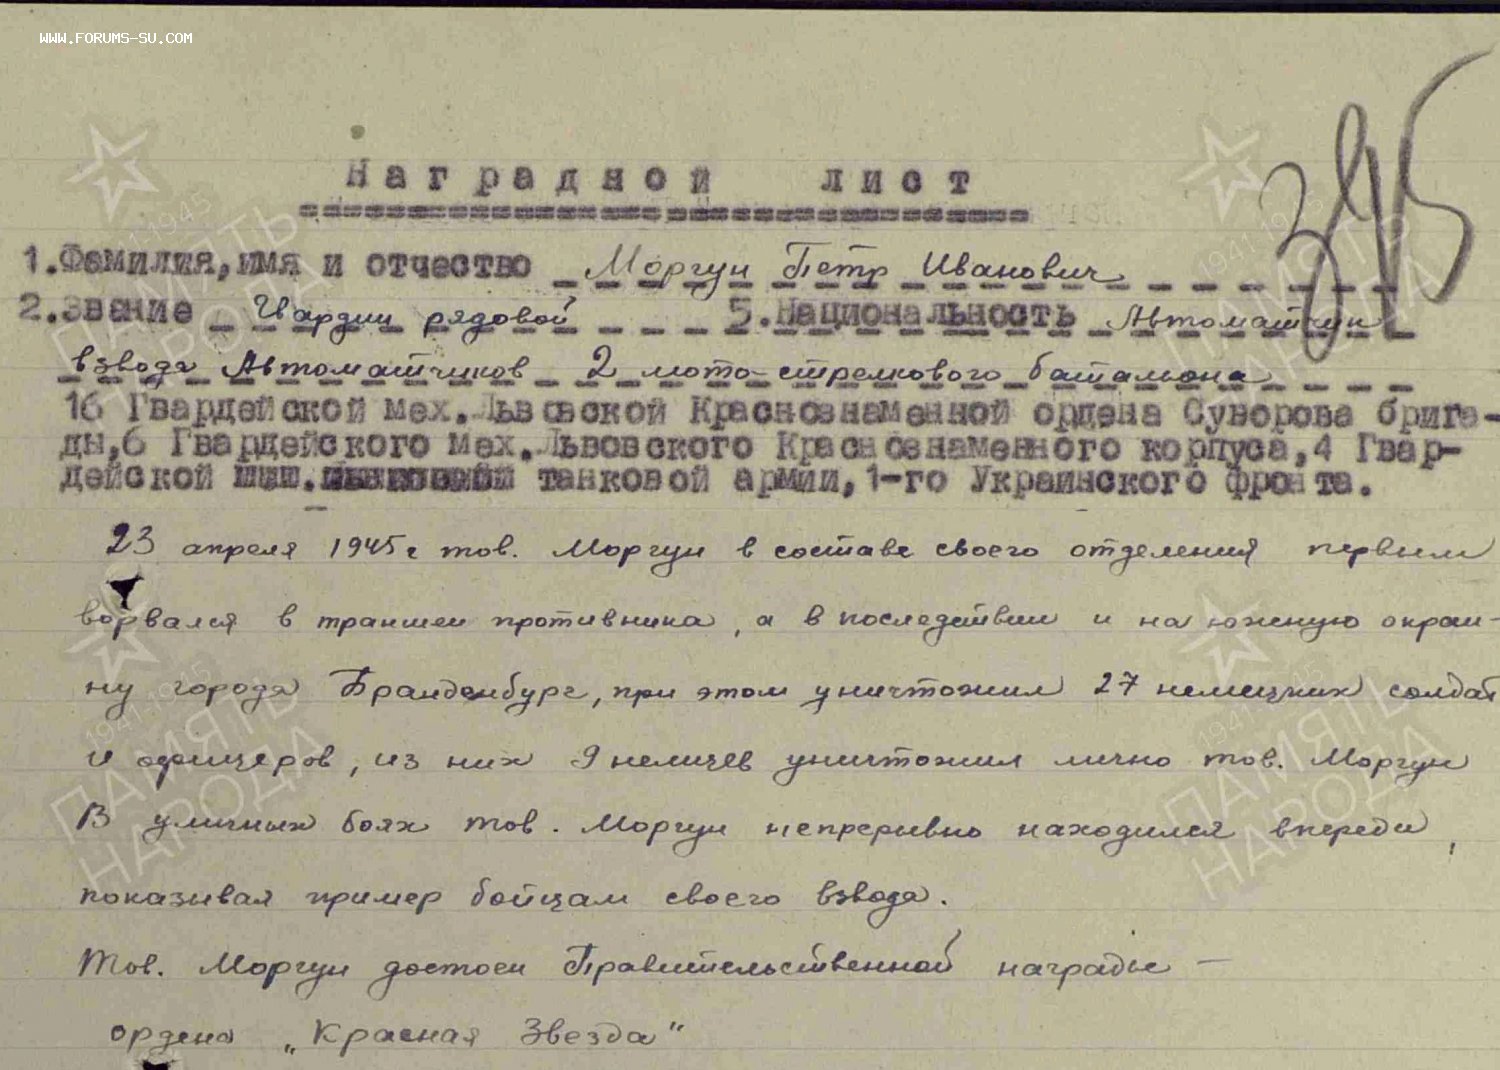 WWW.FORUMS-SU.COM
Наградной лист
1.Фамилия,имя и отчество Моргун Пётр Иванович
2.Звание Гвардии рядовой 5.Национальность Автоматчик
взвода Автоматчиков 2 мото-стрелкового батальона
16 Гвардейской мех.Львовской Краснознаменной ордена Суворова брига-
ды,6 Гвардейского мех.Львовского Краснознаменного корпуса,4 Гвар-
дейской танковой армии,1-го Украинского фронта.
23 апреля 1945 г тов. Моргун в составе своего отделения первым
ворвался в траншеи противника, а в последствии и на южную окраи-
ну города Бранденбург, при этом уничтожил 27 немецких солдат
и офицеров, из них 9 немцев уничтожил лично тов. Моргун
В уличных боях тов. Моргун непрерывно находился впереди,
показывая пример бойцам своего взвода.
Тов. Моргун достоен Правительственной награды —
ордена „Красная Звезда"
ПАМЯТЬ НАРОДА
1941-1945